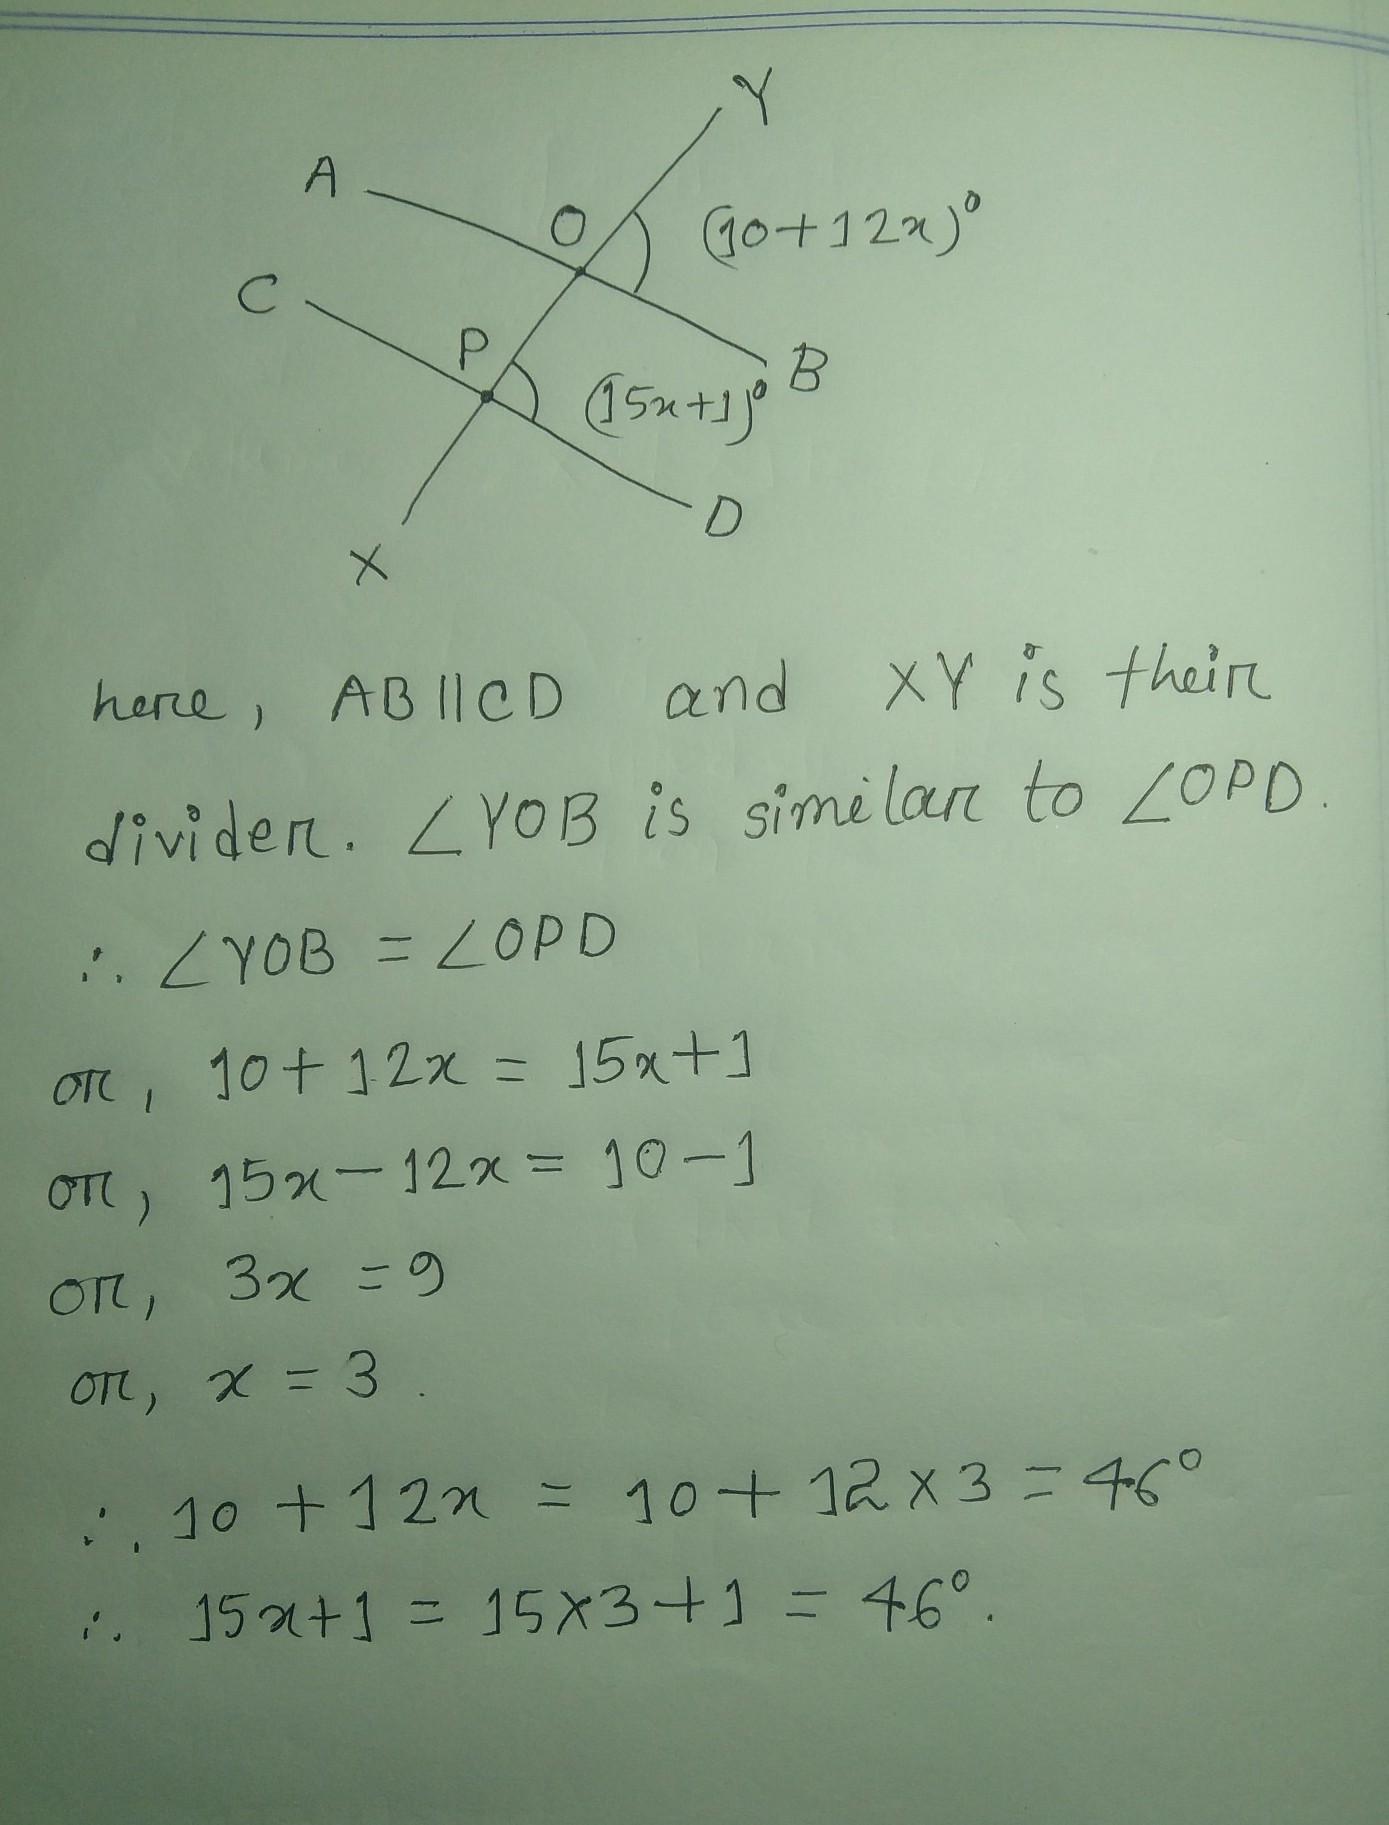 Y
A
O
(10+12x)°
C
P
B
(15x+1)°
D
X
here, AB||CD and XY is their
divider. ∠YOB is similar to ∠OPD.
∴ ∠YOB = ∠OPD
or, 10+12x = 15x+1
or, 15x-12x = 10-1
or, 3x = 9
or, x = 3.
∴ 10 + 12x = 10 + 12×3 = 46°
∴ 15x+1 = 15×3+1 = 46°.